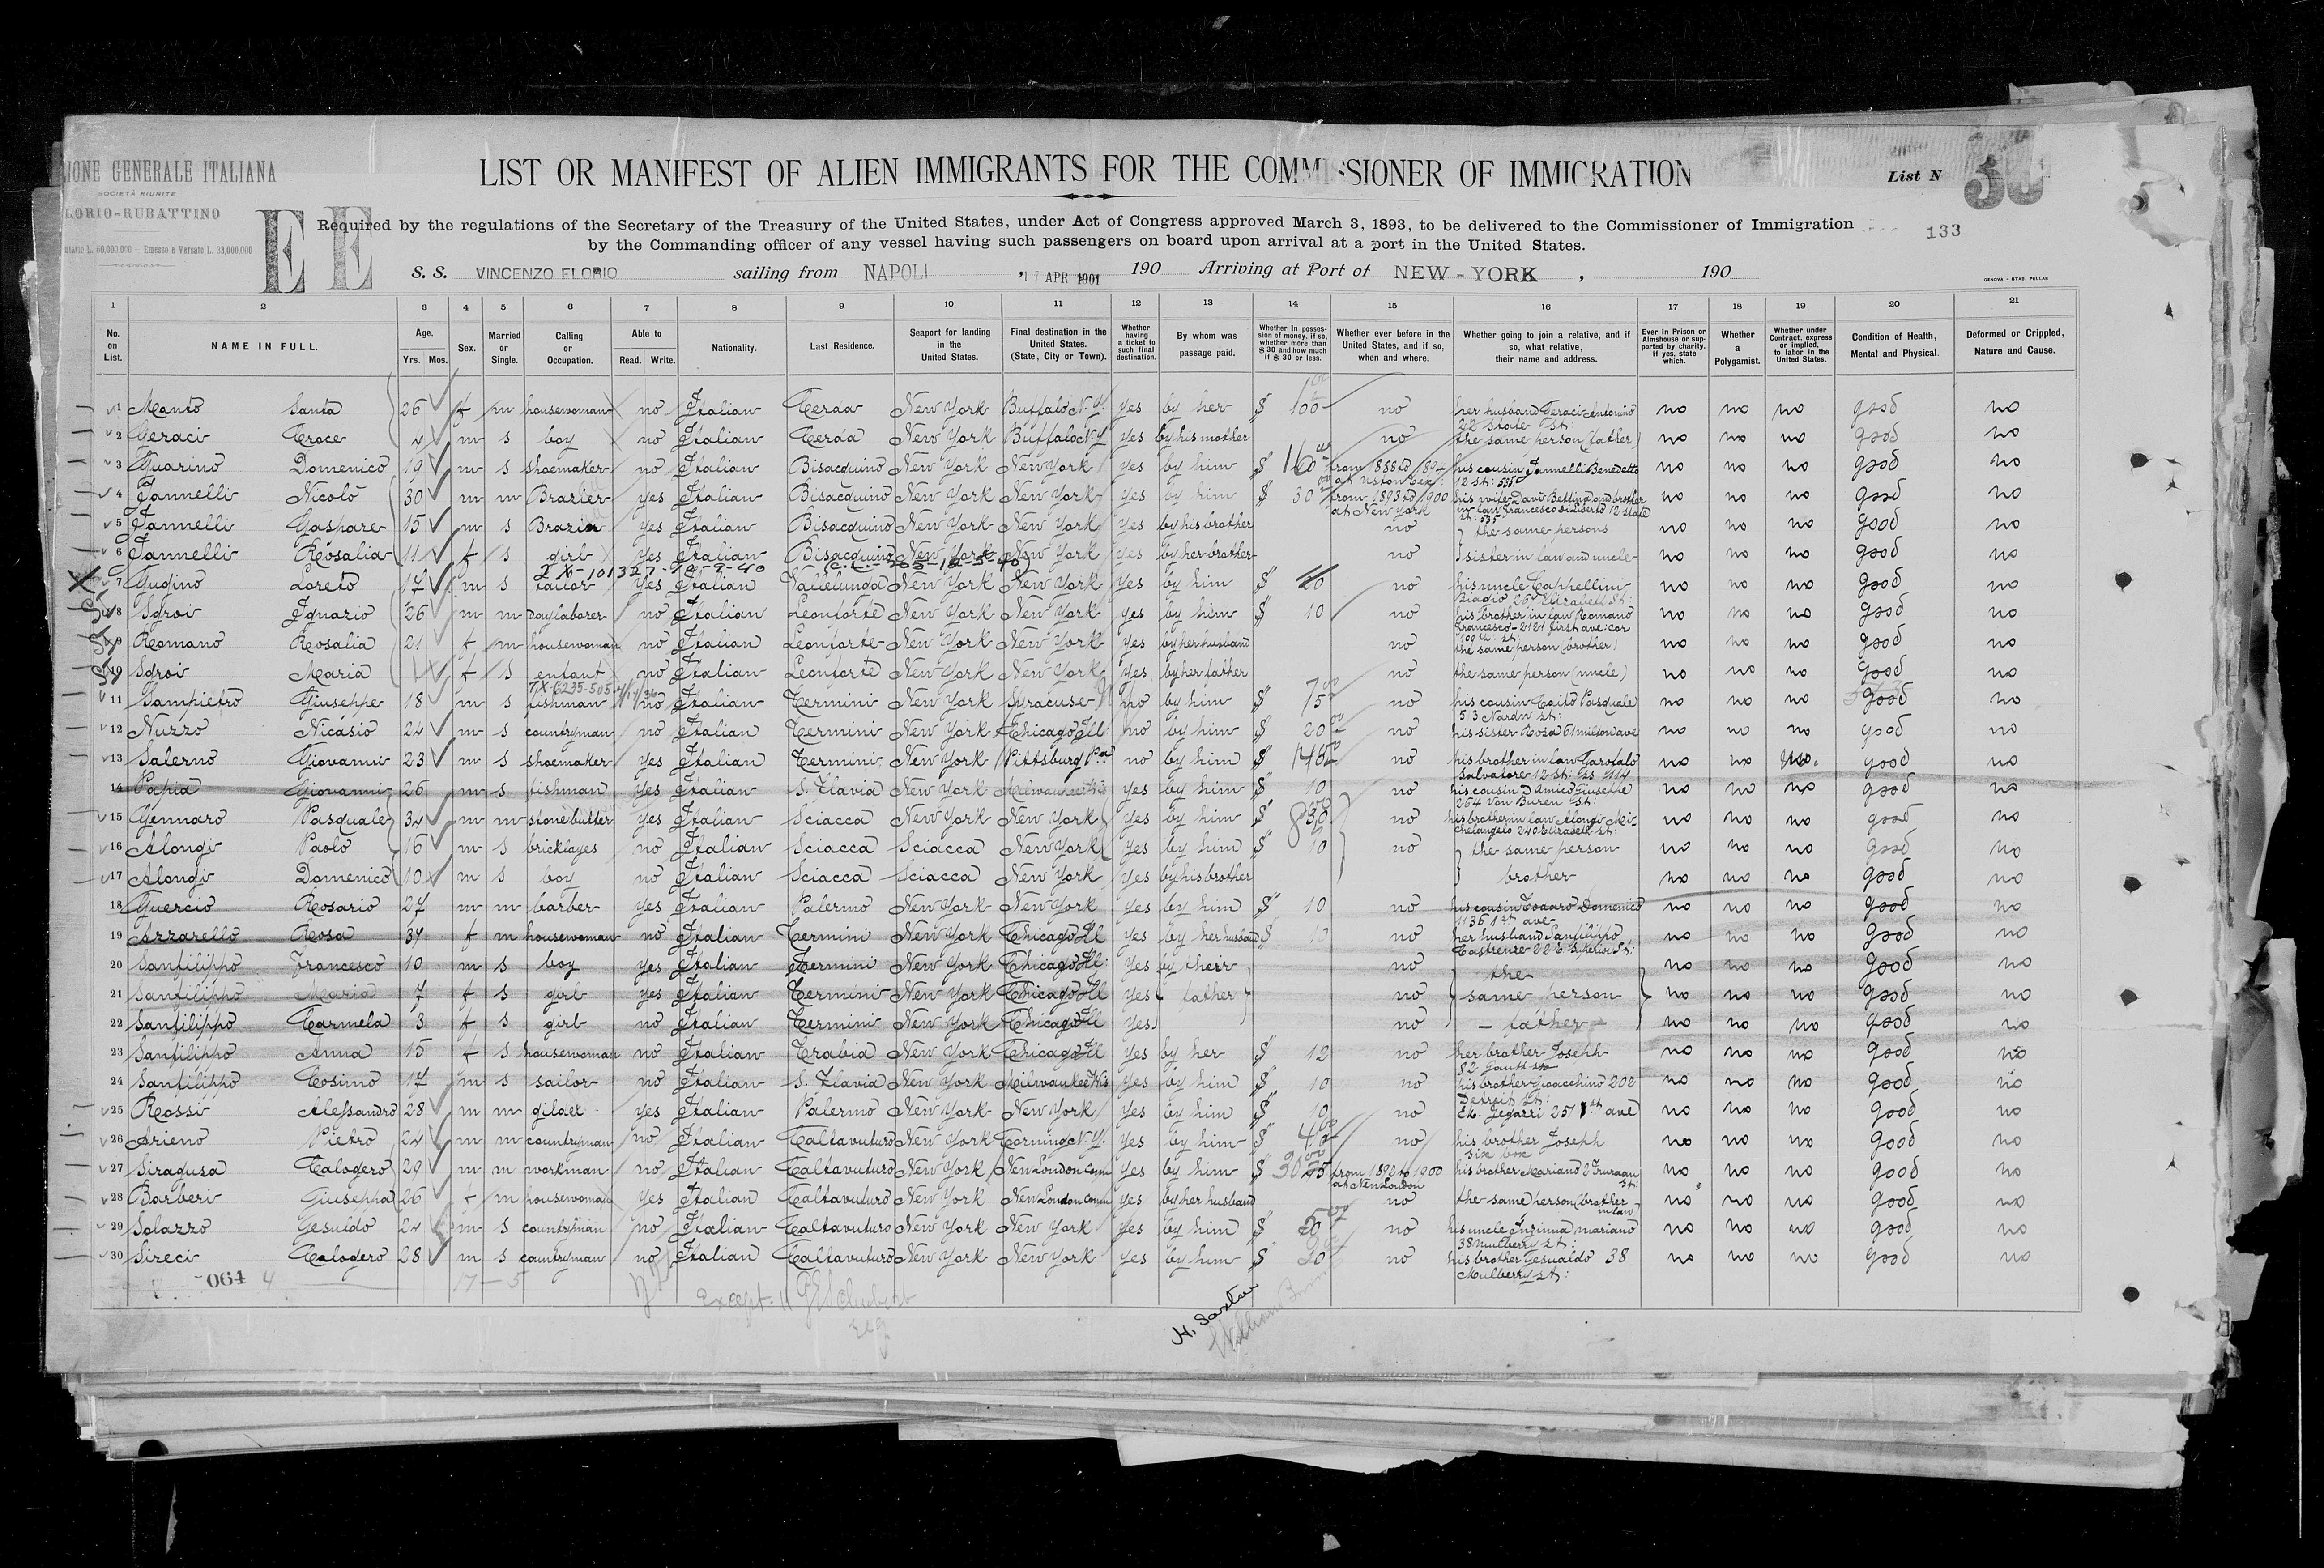 IONE GENERALE ITALIANA
SOCIETÀ RIUNITE
LORIO-RUBATTINO
L. 60,000,000 - Emesso e Versato L. 33,000,000
EE
LIST OR MANIFEST OF ALIEN IMMIGRANTS FOR THE COMMISSIONER OF IMMIGRATION
List N
133
Required by the regulations of the Secretary of the Treasury of the United States, under Act of Congress approved March 3, 1893, to be delivered to the Commissioner of Immigration
by the Commanding officer of any vessel having such passengers on board upon arrival at a port in the United States.
S. S. VINCENZO FLORIO sailing from NAPOLI , 17 APR 1901 190 Arriving at Port of NEW-YORK , 190
GENOVA - STAB. PELLAS
1 2 3 4 5 6 7 8 9 10 11 12 13 14 15 16 17 18 19 20 21
No. on List.
NAME IN FULL.
Age. Yrs. Mos.
Sex.
Married or Single.
Calling or Occupation.
Able to Read. Write.
Nationality.
Last Residence.
Seaport for landing in the United States.
Final destination in the United States. (State, City or Town).
Whether having a ticket to such final destination.
By whom was passage paid.
Whether in possession of money, if so, whether more than $ 30 and how much if $ 30 or less.
Whether ever before in the United States, and if so, when and where.
Whether going to join a relative, and if so, what relative, their name and address.
Ever in Prison or Almshouse or supported by charity. If yes, state which.
Whether a Polygamist.
Whether under Contract, express or implied, to labor in the United States.
Condition of Health, Mental and Physical.
Deformed or Crippled, Nature and Cause.
1 Manto Santa 26 f m housewoman no Italian Cerda New York Buffalo N.Y. yes by her $ 100 no her husband Geraci Antonino no no no good no
22 State St:
2 Geraci Croce m s boy no Italian Cerda New York Buffalo N.Y yes by his mother no the same person (father) no no no good no
3 Guarino Domenico 19 m s shoemaker no Italian Bisacquino New York New York yes by him $ his cousin Jannelli Benedetto no no no good no
12 St: 535
4 Jannelli Nicolò 30 m m Brazier yes Italian Bisacquino New York New York yes by him $ 30 from 1893 to 1900 his wife no no no good no
at New York
5 Jannelli Gashare 15 m s Brazier yes Italian Bisacquino New York New York yes by his brother no the same persons no no no good no
6 Jannelli Rosalia 11 f s girl yes Italian Bisacquino New York New York yes by her brother no sister in law and uncle no no no good no
7 Gugino Loreto 17 m s tailor yes Italian Vallelunga New York New York yes by him $ 20 no his uncle Cappellini no no no good no
Biagio 26 Elizabeth St:
8 Sgroi Ignazio 26 m m daylaborer no Italian Leonforte New York New York yes by him $ 10 no his brother in law Romano no no no good no
Francesco - 2121 first ave: cor
109th: st:
9 Romano Rosalia 21 f m housewoman no Italian Leonforte New York New York yes by her husband no the same person (brother) no no no good no
10 Sgroi Maria f s enfant no Italian Leonforte New York New York yes by her father no the same person (uncle) no no no good no
11 Sampietro Giuseppe 18 m s fishman no Italian Termini New York Syracuse no by him $ 75 no his cousin Pasquale no no no good no
12 Nuzzo Nicasio 24 m s countryman no Italian Termini New York Chicago Ill no by him $ 20 no his sister Rosa 61 milton ave no no no good no
13 Salerno Giovanni 23 m s shoemaker yes Italian Termini New York Pittsburg Pa no by him $ no his brother in law Garofalo no no no good no
14 Papia Giovanni 26 m s fishman yes Italian S. Flavia New York Milwaukee Wis yes by him $ 10 no his cousin D'Amico Giuseppe no no no good no
264 Van Buren St:
15 Gennaro Pasquale 34 m m stone cutter yes Italian Sciacca New York New York yes by him $ 30 no his brother in law Alongi Michelangelo 240 Elizabeth st: no no no good no
16 Alongi Paolo 16 m s bricklayes no Italian Sciacca Sciacca New York yes by him $ 10 no the same person no no no good no
17 Alongi Domenico 10 m s boy no Italian Sciacca Sciacca New York yes by his brother brother no no no good no
18 Guercio Rosario 27 m m barber yes Italian Palermo New York New York yes by him $ 10 no his cousin Domenico no no no good no
1136 1st ave
19 Azzarello Rosa 34 f m housewoman no Italian Termini New York Chicago Ill yes by her husband $ 10 no her husband Sanfilippo no no no good no
20 Sanfilippo Francesco 10 m s boy yes Italian Termini New York Chicago Ill yes by their no the no no no good no
21 Sanfilippo Maria 7 f s girl yes Italian Termini New York Chicago Ill yes father no same person no no no good no
22 Sanfilippo Carmela 3 f s girl no Italian Termini New York Chicago Ill yes no - father - no no no good no
23 Sanfilippo Anna 15 f s housewoman no Italian Trabia New York Chicago Ill yes by her $ 12 no her brother Joseph no no no good no
24 Sanfilippo Cosimo 17 m s sailor no Italian S. Flavia New York Milwaukee Wis yes by him $ 10 no his brother Gioacchino 202 no no no good no
Detroit St:
25 Rossi Alessandro 28 m m gilder yes Italian Palermo New York New York yes by him $ 10 no ave no no no good no
26 Arieno Pietro 24 m m countryman no Italian Caltavuturo New York Corning N.Y. yes by him $ no his brother Joseph no no no good no
six box
27 Siragusa Calogero 29 m m workman no Italian Caltavuturo New York New London Conn yes by him $ from 1892 to 1900 his brother Mariano no no no good no
at New London
28 Barberi Giuseppa 26 f m housewoman yes Italian Caltavuturo New York New London Conn yes by her husband no the same person (brother in law no no no good no
29 Solazzo Gesualdo 24 m s countryman no Italian Caltavuturo New York New York yes by him $ no his uncle Inzinna mariano no no no good no
38 mulberry st:
30 Sireci Calogero 28 m s countryman no Italian Caltavuturo New York New York yes by him $ 20 no his brother Gesualdo 38 no no no good no
Mulberry st:
064 4 17 - 5
Except. 11 G E Schubert
H. Saxton